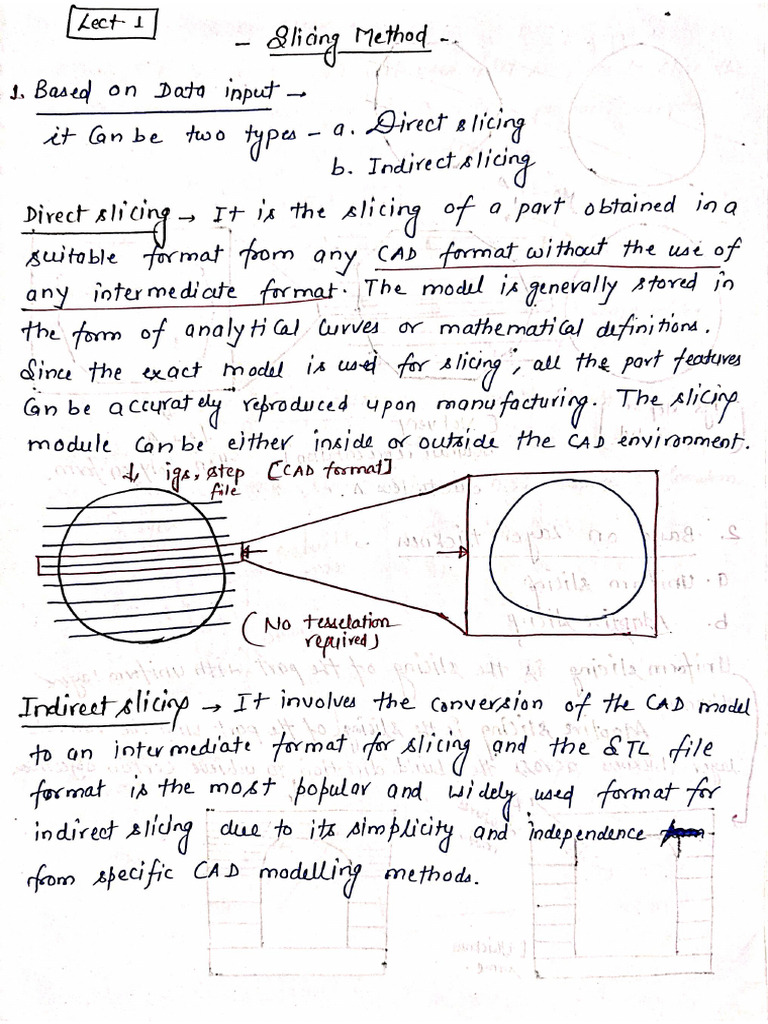 Lect-1
- Slicing Method -
1. Based on Data input →
it can be two types - a. Direct slicing
b. Indirect slicing
Direct slicing → It is the slicing of a part obtained in a
suitable format from any CAD format without the use of
any intermediate format. The model is generally stored in
the form of analytical curves or mathematical definitions.
Since the exact model is used for slicing, all the part features
can be accurately reproduced upon manufacturing. The slicing
module can be either inside or outside the CAD environment.
↓, igs, step [CAD format]
file
(No tesselation
required)
Indirect slicing → It involves the conversion of the CAD model
to an intermediate format for slicing and the STL file
format is the most popular and widely used format for
indirect slicing due to its simplicity and independence
from specific CAD modelling methods.